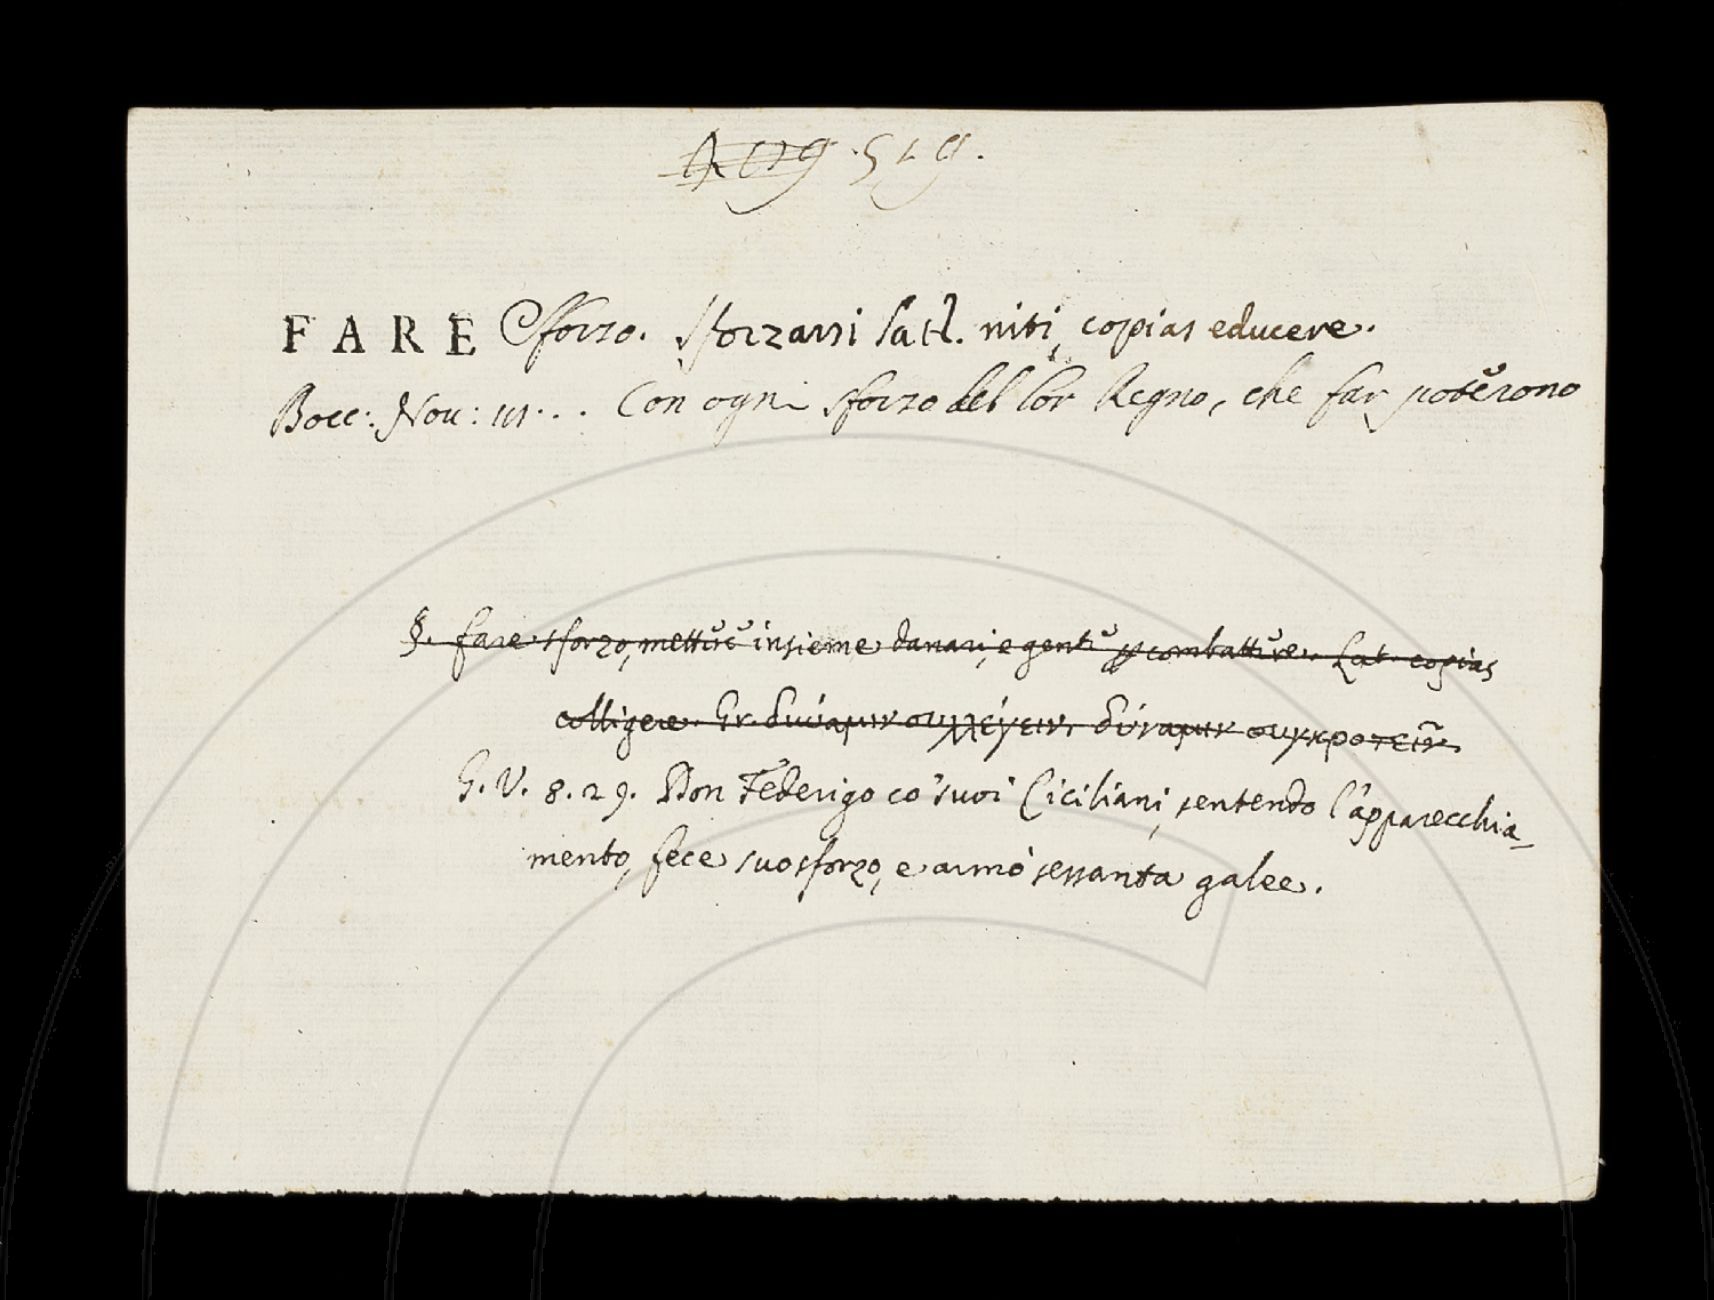 519.
FARE Sforzo. Sforzarsi Latt. niti, copias educere.
Bocc: Nov: 111... Con ogni sforzo del lor Regno, che far poterono
§. fare sforzo, mettere insieme danari, e gente p combattere. Lat. copias
colligere. Gr. δύναμιν συλλέγειν. δύναμιν συγκροτεῖν.
G.V. 8.29. Don Federigo co' suoi Ciciliani, sentendo l'apparecchia-
mento, fece suo sforzo, e armò sessanta galee.